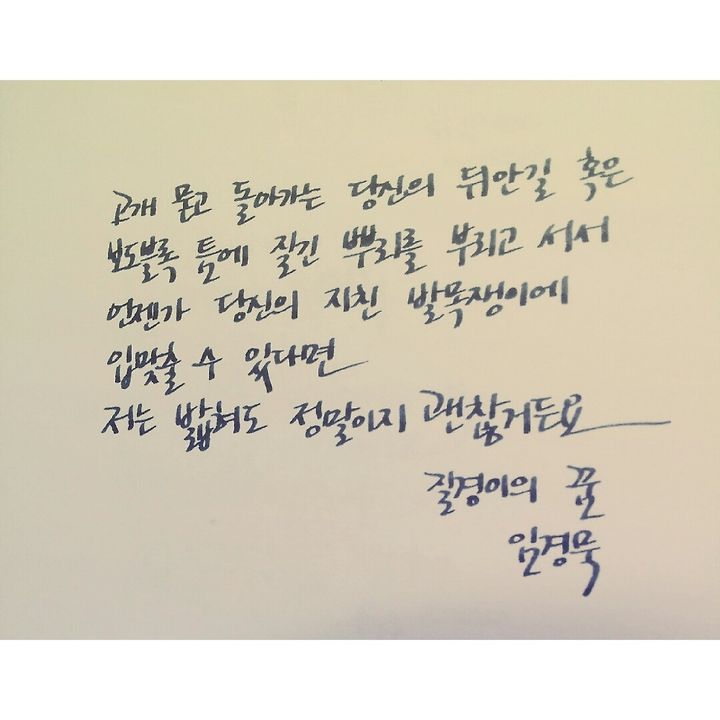 고개 묻고 돌아가는 당신의 뒤안길 혹은
보도블록 틈에 질긴 뿌리를 부리고 서서
언젠가 당신의 지친 발목쟁이에
입맞출 수 있다면
저는 밟혀도 정말이지 괜찮거든요
질경이의 꿈
임경묵